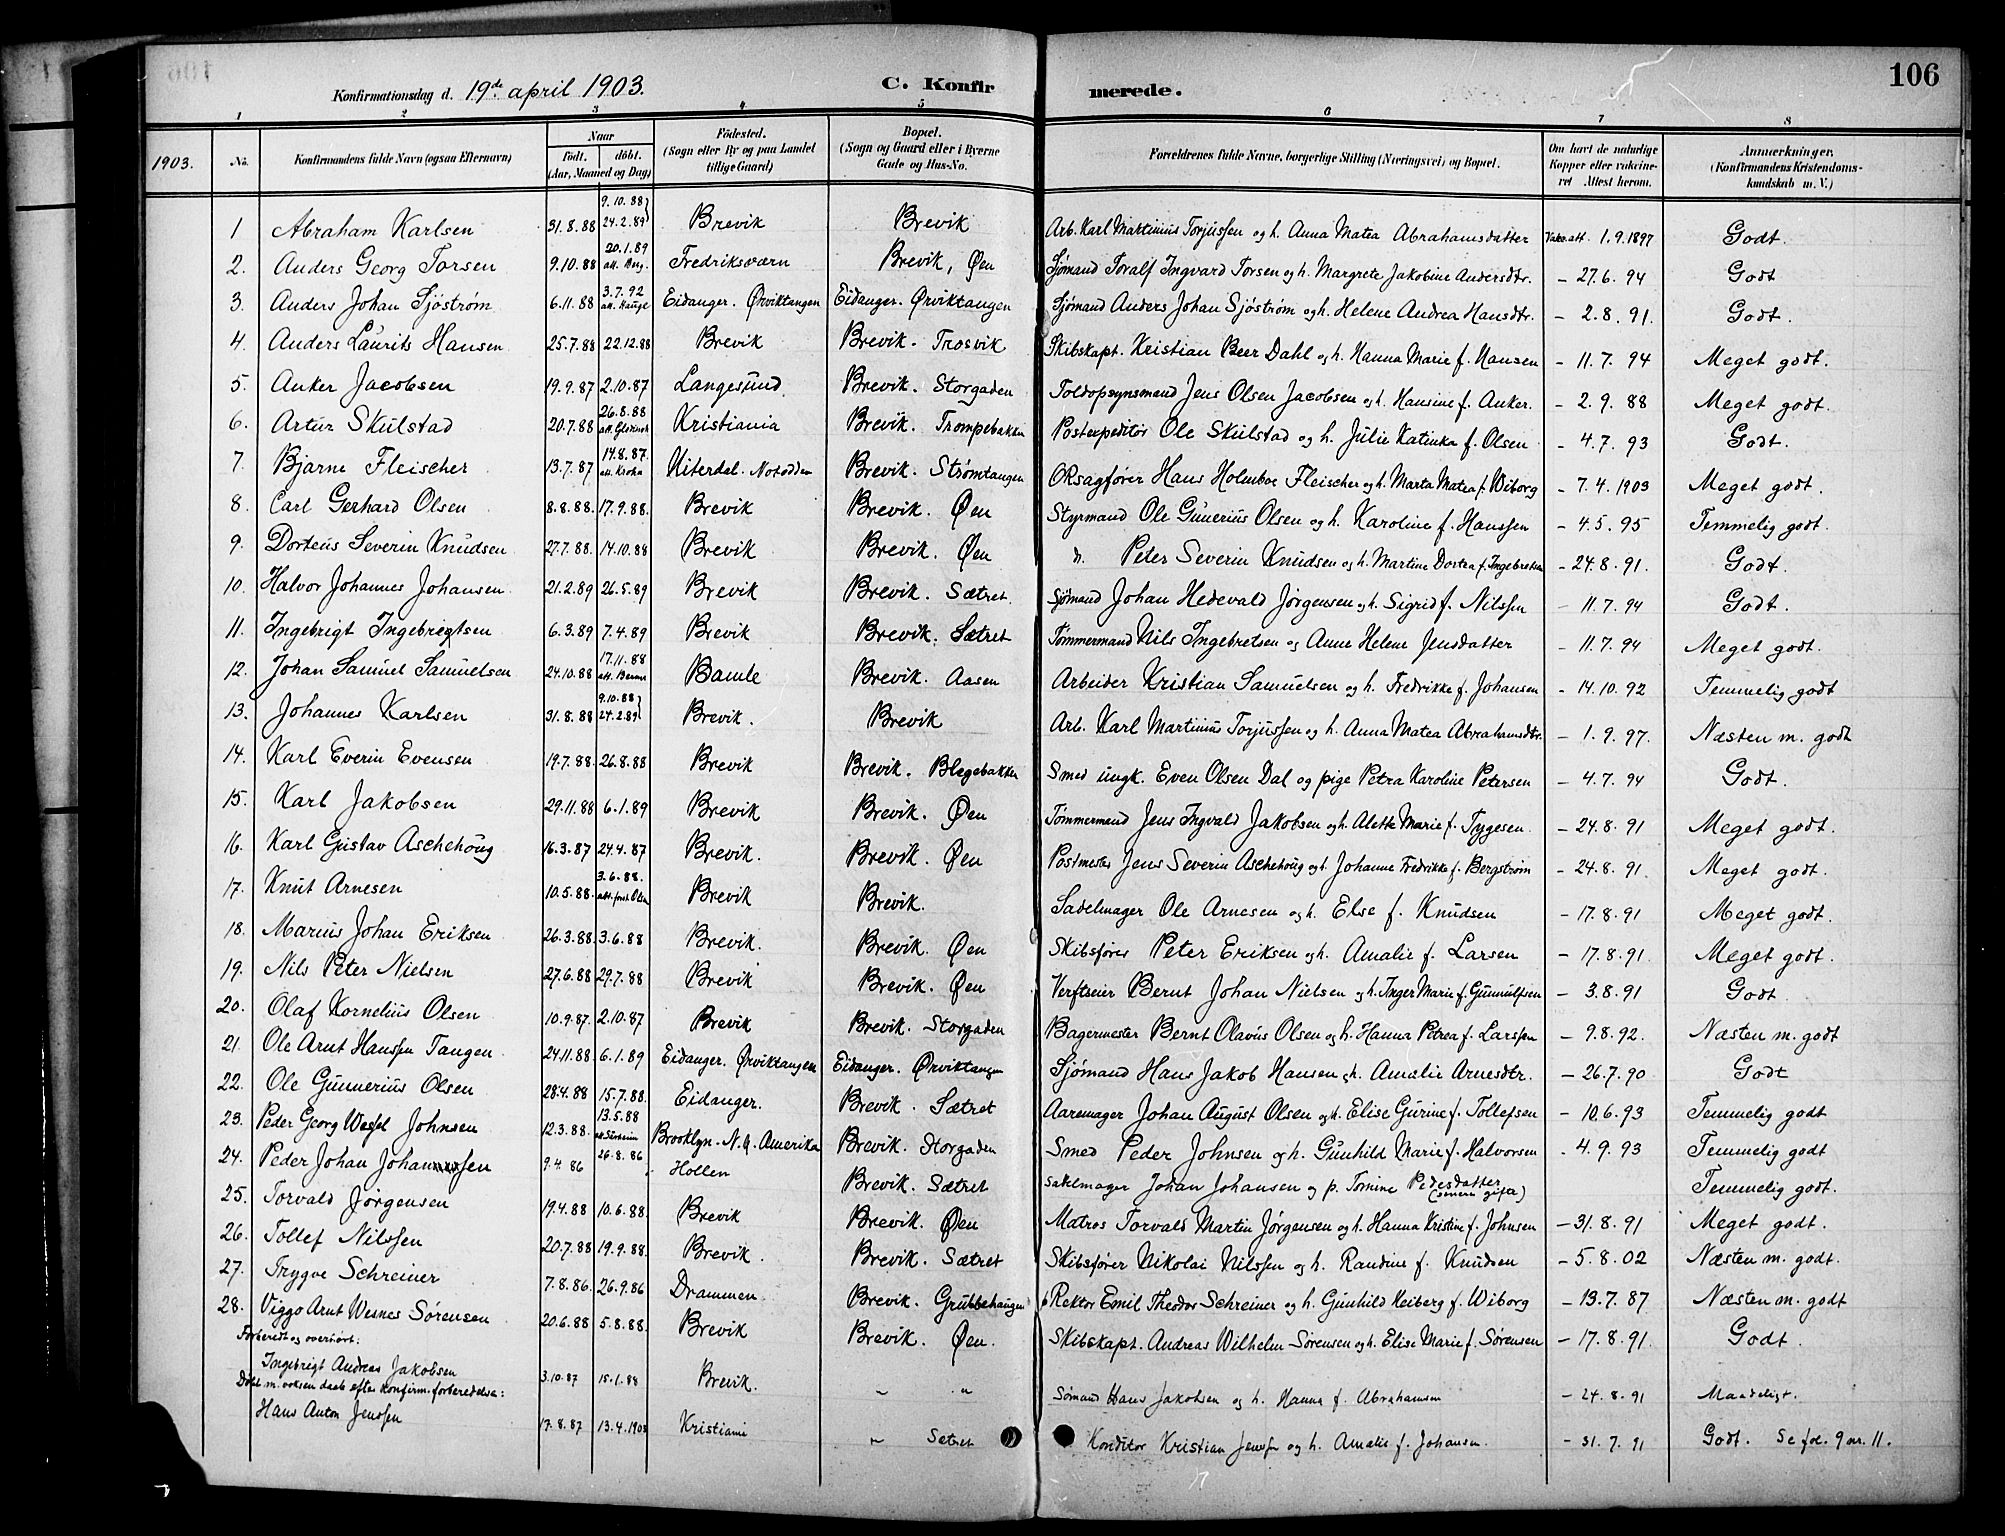 Konfirmationsdag d. 19de april 1903. C. Konfirmerede. 106
1 2 3 4 5 6 7 8
1903. No. Konfirmandens fulde Navn (ogsaa Efternavn) Naar födt. döbt. (Aar, Maaned og Dag) Födested. (Sogn eller By og paa Landet tillige Gaard) Bopæl. (Sogn og Gaard eller i Byerne Gade og Hus-No. Forældrenes fulde Navne, borgerlige Stilling (Næringsvei) og Bopæl. Om havt de naturlige Kopper eller vakcineret Attest herom. Anmærkninger. (Konfirmandens Kristendomskundskab m. V.)
1 Abraham Karlsen 31.8.88 9.10.88 } 24.2.89 Brevik Brevik Arb. Karl Martinius Torjussen og h. Anna Matea Abrahamsdatter Vakc. att. 1.9.1897 Godt.
2. Anders Georg Torsen 9.10.88 20.1.89 att. Berg. Fredriksværn Brevik, Øen Sjømand Toralf Ingvard Torsen og h. Margrete Jakobine Andersdtr. - 27.6.94 Godt
3. Anders Johan Sjöstrøm 6.11.88 3.7.92 att. Hauge Eidanger. Ørviktangen Eidanger. Ørviktangen Sjømand Anders Johan Sjöstrøm og h. Helene Andrea Hansdtr. - 2.8.91. Godt.
4. Anders Laurits Hansen 25.7.88 22.12.88 Brevik Brevik. Trosvik Skibskapt. Kristian Beer Dahl og h. Hanna Marie f. Hansen - 11.7.94 Meget godt.
5. Anker Jacobsen 19.9.87 2.10.87 Langesund Brevik. Storgaden Toldopsynsmand Jens Olsen Jacobsen og h. Hansine f. Anker. - 2.9.88 Meget godt.
6. Artur Skulstad 20.7.88 26.8.88 Kristiania Brevik. Trompebakken Postexpeditör Ole Skulstad og h. Julie Katinka f. Olsen - 4.7.93 Godt.
7. Bjarne Fleischer 13.7.87 14.8.87. att. Krohn Hiterdal. Notodden Brevik. Strømtangen ORsagfører Hans Holmboe Fleischer og h. Marta Matea f. Wiborg - 7.4.1903 Meget godt.
8. Carl Gerhard Olsen 8.8.88. 17.9.88. Brevik Brevik. Øen Styrmand Ole Gunerius Olsen og h. Karoline f. Hanssen - 4.5.95 Temmelig godt.
9. Dorteus Severin Knudsen 27.7.88. 14.10.88 Brevik Brevik. Øen Peter Severin Knudsen og h. Martine Dortea f. Ingebretsen - 24.8.91. Godt.
10. Halvor Johannes Johansen. 21.2.89 26.5.89 Brevik Brevik. Sætret. Sjømand Johan Hedevald Jørgensen og h. Sigrid f. Nilssen - 11.7.94 Godt.
11. Ingebrigt Ingebrigtsen 6.3.89 7.4.89 Brevik Brevik. Sætret Tømmermand Nils Ingebretsen og Anne Helene Jensdatter - 11.7.94 Meget godt.
12. Johan Samuel Samuelsen 24.10.88 17.11.88 Bamle Brevik. Aasen Arbeider Kristian Samuelsen og h. Fredrikke f. Johansen - 14.10.92 Temmelig godt
13. Johannes Karlsen 31.8.88 9.10.88 } 24.2.89 Brevik. Brevik Arb. Karl Martinius Torjussen og h. Anna Matea Abrahamsdtr. - 1.9.97. Næsten m. godt
14. Karl Everin Evensen 19.7.88. 26.8.88 Brevik Brevik. Blegebakken Smed ungk. Even Olsen Dal og pige Petra Karoline Petersen - 4.7.94 Godt.
15. Karl Jakobsen 29.11.88 6.1.89 Brevik Brevik. Øen Tömmermand Jens Ingvald Jakobsen og h. Alette Marie f. Tygesen. - 24.8.91 Meget godt.
16. Karl Gustav Aschehoug 16.3.87 24.4.87 Brevik. Brevik. Øen Postmester Jens Severin Aschehoug og h. Johanne Fredrikke f. Bergström - 24.8.91. Meget godt.
17. Knut Arnesen 10.5.88. 3.6.88. Brevik Brevik. Sadelmager Ole Arnesen og h. Else f. Knudsen - 17.8.91 Meget godt.
18. Marius Johan Eriksen 26.3.88. 3.6.88 Brevik. Brevik. Øen Skibsfører Peter Eriksen og h. Amalie f. Larsen - 17.8.91. Meget godt.
19. Nils Peter Nielsen 27.6.88 29.7.88 Brevik Brevik. Øen Verftseier Bernt Johan Nielsen og h. Inger Marie f. Gunnulfsen - 3.8.91 Godt
20. Olaf Kornelius Olsen 10.9.87. 2.10.87 Brevik Brevik. Storgaden Bagermester Bernt Olavus Olsen og h. Hanna Petrea f. Larssen - 9.8.92. Næsten m. godt
21. Ole Arnt Hanssen Tangen 24.11.88. 6.1.89 Eidanger. Ørviktangen Eidanger. Ørviktangen Sjømand Hans Jakob Hansen og h. Amalie Arnesdtr. - 26.7.90 Godt
22. Ole Gunnerius Olsen 28.4.88 15.7.88. Eidanger. Brevik. Sætret Aaremager Johan August Olsen og h. Elise Gurine f. Tollefsen - 10.6.93 Temmelig godt
23. Peder Georg Wessel Johnsen 12.3.88. 13.5.88 Brooklyn. N.A. Amerika Brevik. Storgaden Smed Peder Johnsen og h. Gunhild Marie f. Halvorsen - 4.9.93 Temmelig godt
24. Peder Johan Johansen 9.4.86 26.8.86 Hollen Brevik. Sætret Sadelmager Johan Johansen og p. Tomine Pedersdatter (senere gifte) Temmelig godt.
25. Torvald Jørgensen 19.4.88 10.6.88. Brevik Brevik. Øen Matros Torvald Martin Jørgensen og h. Hanna Kristine f. Johnsen - 31.8.91 Meget godt.
26. Tollef Nilssen 20.7.88 19.9.88. Brevik. Brevik. Sætret Skibsfører Nikolai Nilssen og h. Randine f. Knudsen - 5.8.02 Næsten m. godt.
27. Trygve Schreiner 7.8.86. 26.9.86 Drammen. Brevik. Grubbehaugen Rektor Emil Theodor Schreiner og h. Gunhild Heiberg f. Wiborg - 13.7.87 Næsten m. godt
28. Viggo Arnt Wesnes Sørensen 20.6.88 5.8.88. Brevik Brevik. Øen. Skibskapt. Andreas Wilhelm Sørensen og h. Elise Marie f. Sørensen - 17.8.91 Godt.
Forberedt og overhört:
Ingebrigt Andreas Jakobsen 3.10.87 15.1.88 Brevik. " " Sømand Hans Jakobsen og h. Hanna f. Abrahamsen - 24.8.91 Maadeligt.
Döbt m. voksen daab efter konfirm. forberedelse:
Hans Anton Jenssen 17.8.87 13.4.1903 Kristiani " Sætret Konditor Kristian Jenssen og h. Amalie f. Johansen. - 31.7.91 Godt. Se fol. 9 nr. 11.